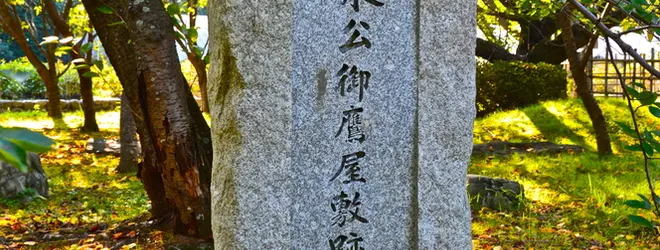 公御鷹屋敷跡